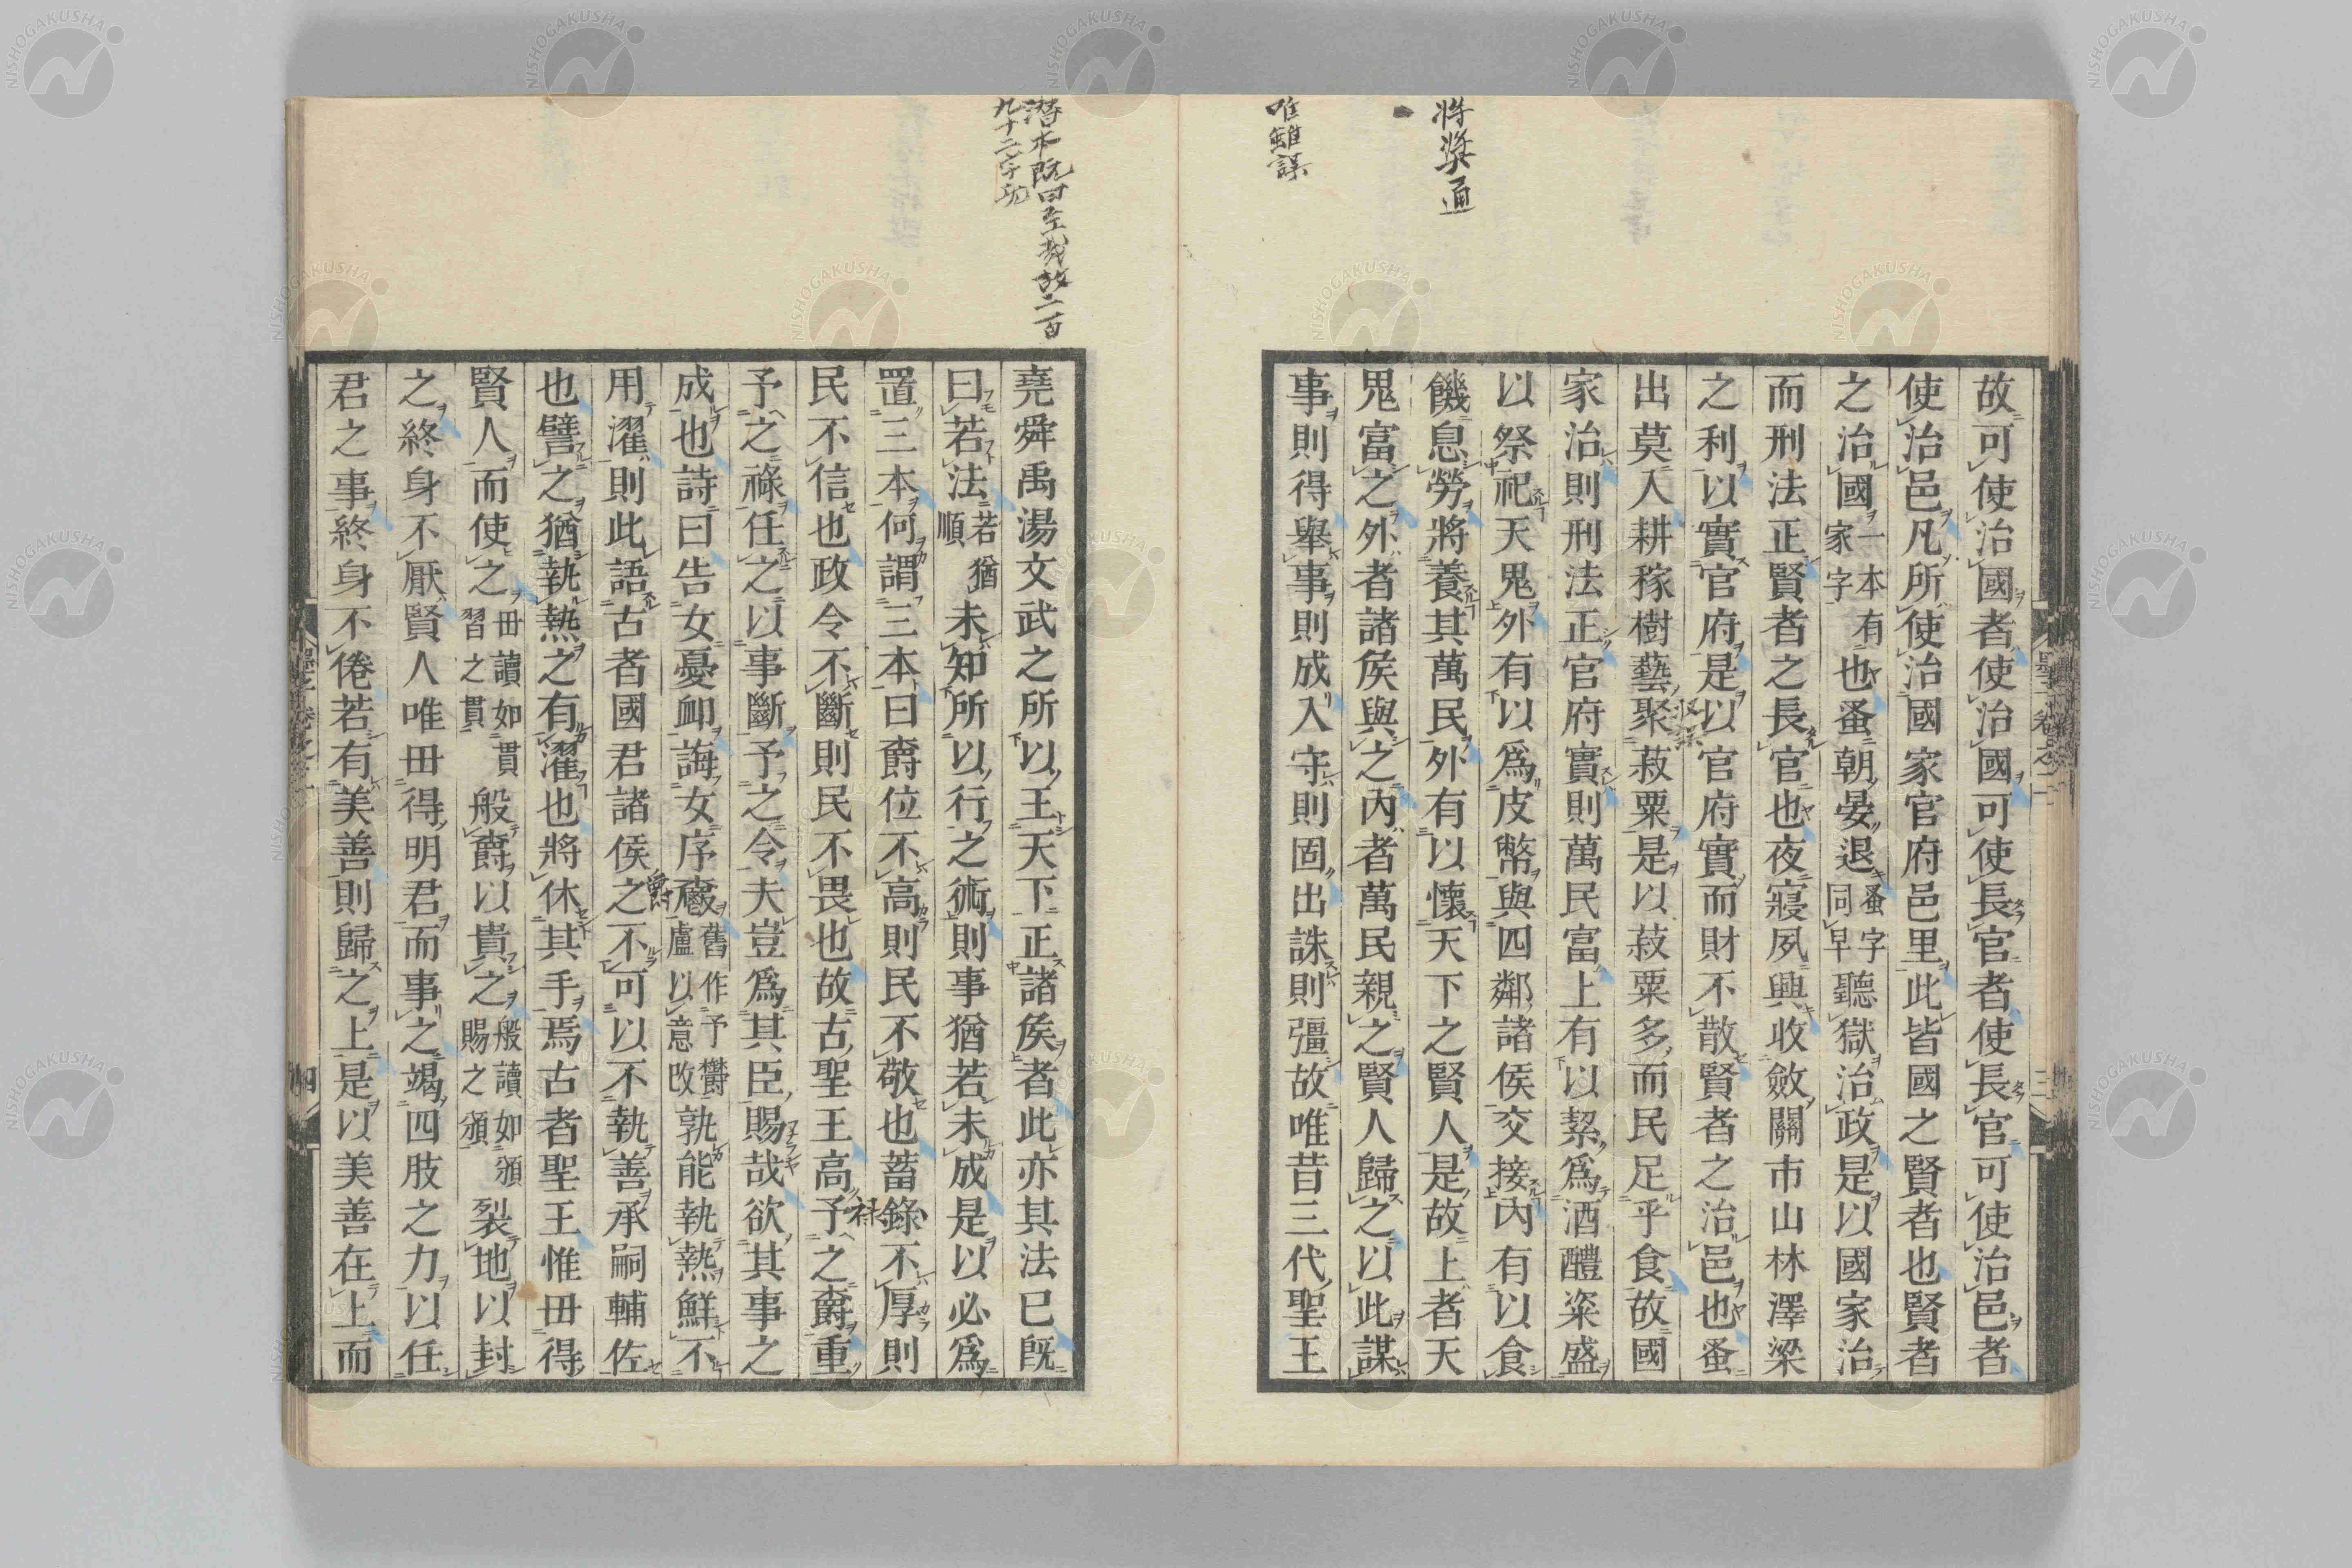 將獎通
唯雖誤
故可使治國者使治國可使長官者使長官可使治邑者
使治邑凡所使治國家官府邑里此皆國之賢者也賢者
之治國一本有家字也蚤朝晏退蚤字同早聽獄治政是以國家治
而刑法正賢者之長官也夜寢夙興收斂關市山林澤梁
之利以實官府是以官府實而財不散賢者之治邑也蚤
出莫入耕稼樹藝聚菽粟是以菽粟多而民足乎食故國
家治則刑法正官府實則萬民富上有以絜爲酒醴粢盛
以祭祀天鬼外有以爲皮幣與四鄰諸侯交接內有以食
饑息勞將養其萬民外有以懷天下之賢人是故上者天
鬼富之外者諸侯與之內者萬民親之賢人歸之以此謀
事則得舉事則成入守則固出誅則彊故唯昔三代聖王
潛本既曰至哉故二百
九十二字
堯舜禹湯文武之所以王天下正諸侯者此亦其法已既
曰若法若猶順未知所以行之術則事猶若未成是以必爲
置三本何謂三本曰爵位不高則民不敬也蓄錄不厚則
祿
民不信也政令不斷則民不畏也故古聖王高予之爵重
予之祿任之以事斷予之令夫豈爲其臣賜哉欲其事之
成也詩曰告女憂卹誨女序𤔡舊作予鬱盧以意改孰能執熱鮮不
爵
用濯則此語古者國君諸侯之不可以不執善承嗣輔佐
也譬之猶執熱之有濯也將休其手焉古者聖王惟毌得
賢人而使之毌讀如貫習之貫般爵以貴之般讀如頒賜之頒裂地以封
之終身不厭賢人唯毌得明君而事之竭四肢之力以任
君之事終身不倦若有美善則歸之上是以美善在上而
墨子卷之二
三
四
NISHOGAKUSHA